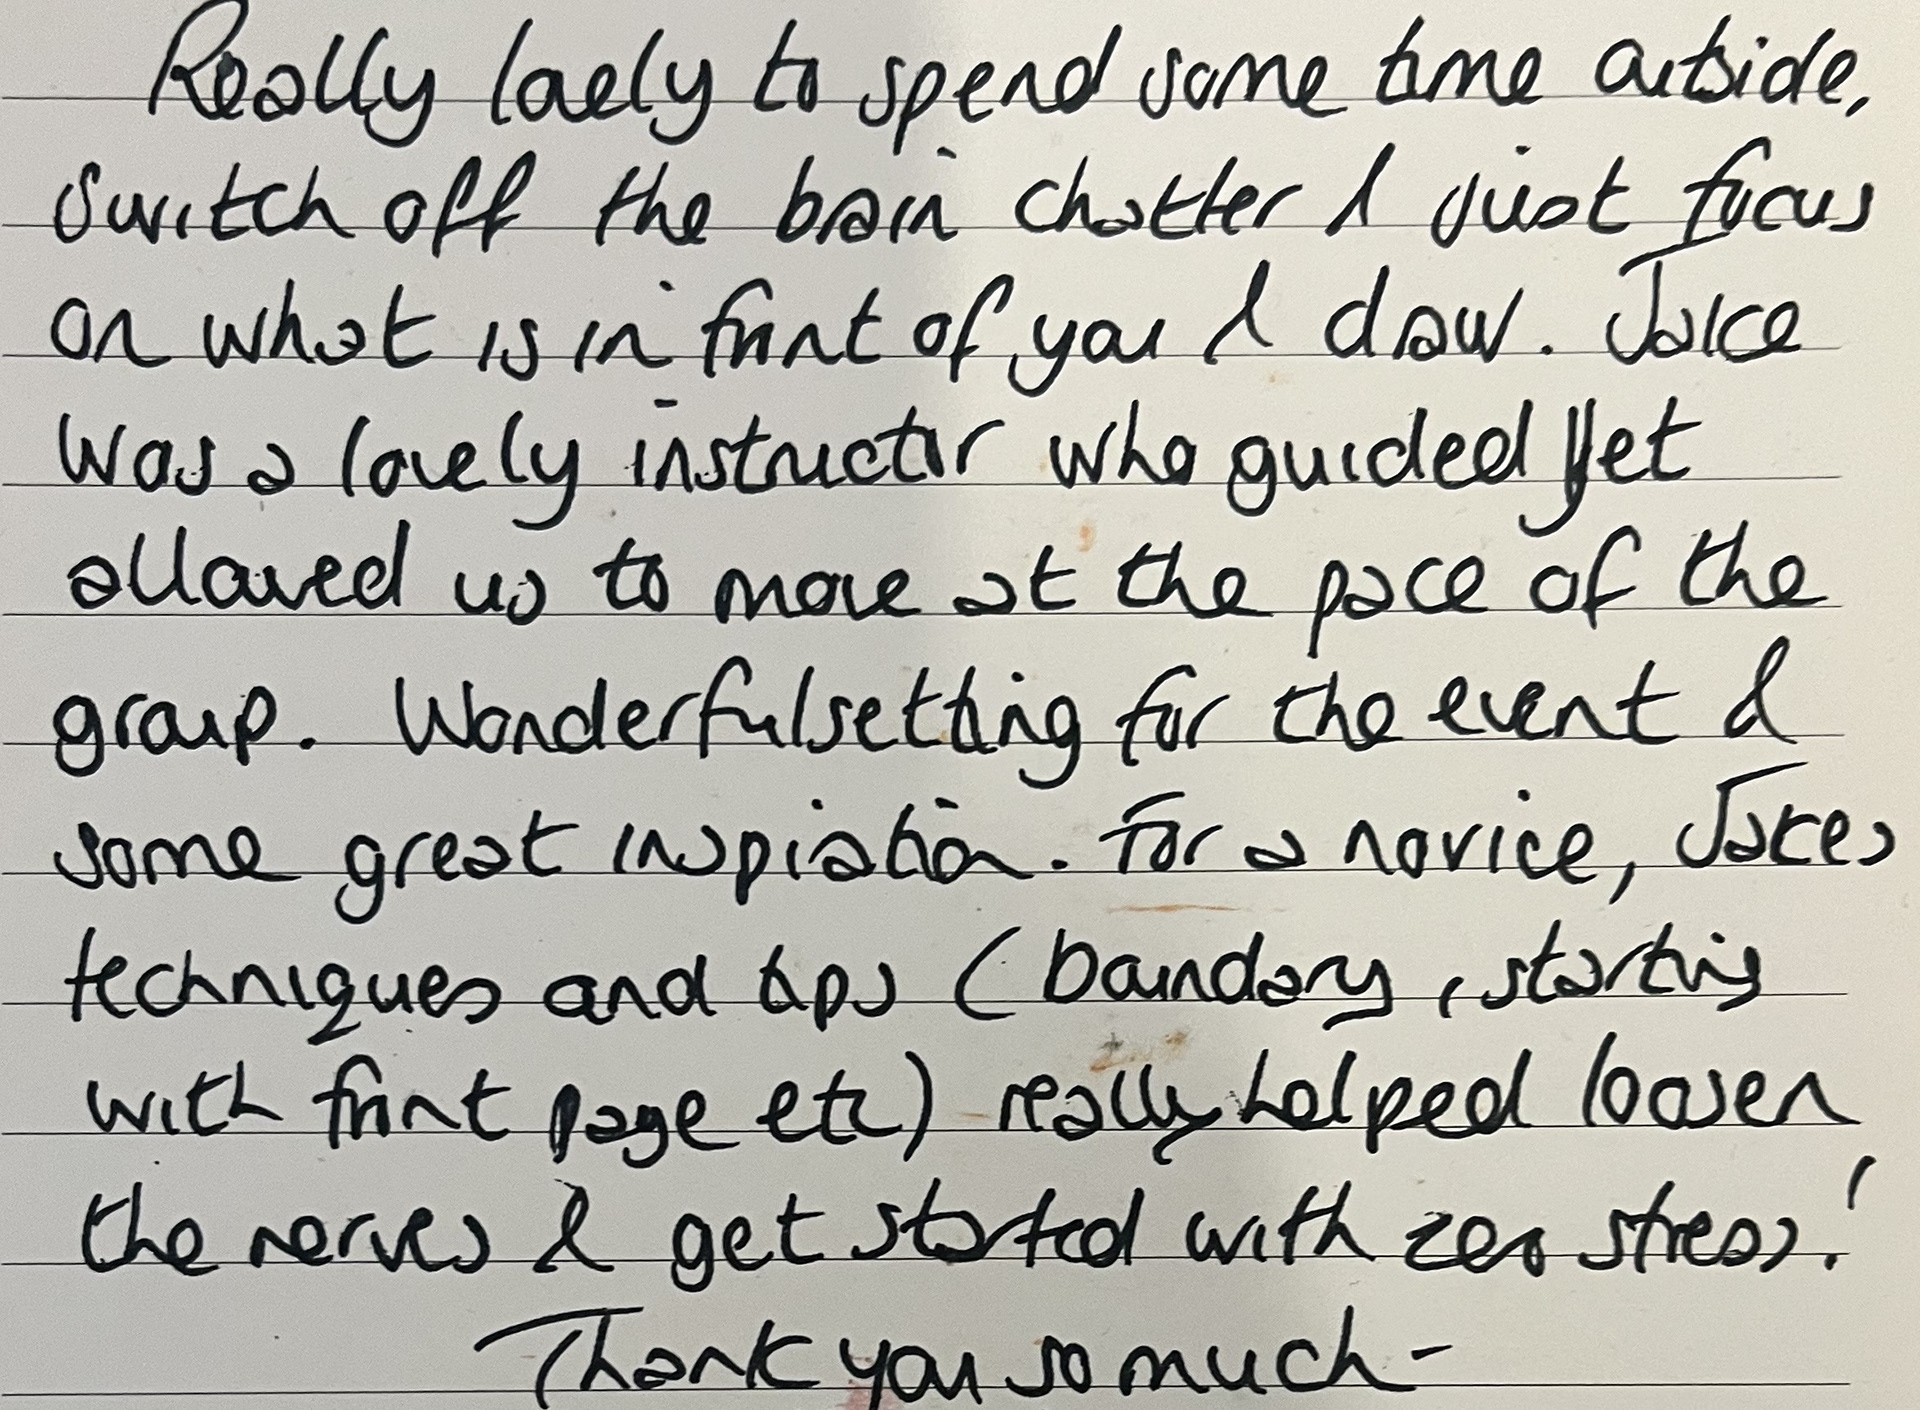 Really lovely to spend some time outside,
switch off the brain chatter & just focus
on what is in front of you & draw. Jake
was a lovely instructor who guided yet
allowed us to move at the pace of the
group. Wonderful setting for the event &
some great inspiation. For a novice, Jakes
techniques and tips (boundary, starting
with front page etc) really helped loosen
the nerves & get started with zero stress!
Thank you so much -